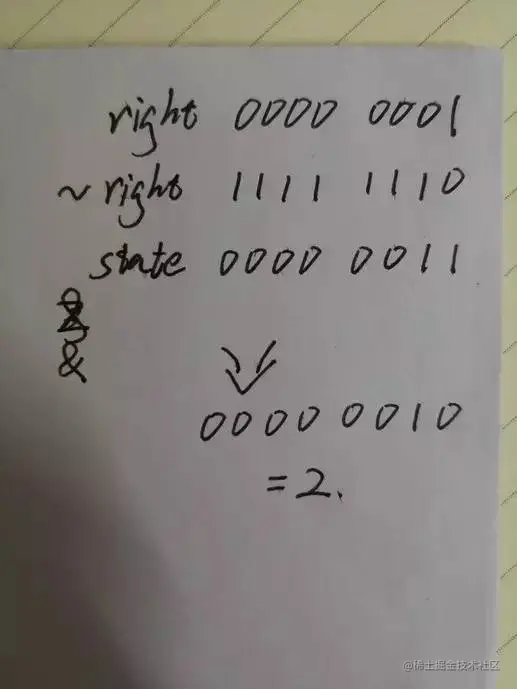 right 0000 0001
~ right 1111 1110
state 0000 0011
&
0000 0010
= 2.
@稀土掘金技术社区